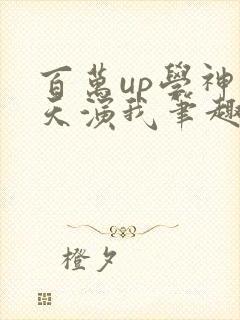 百萬up學神
天演我筆趣
橙夕